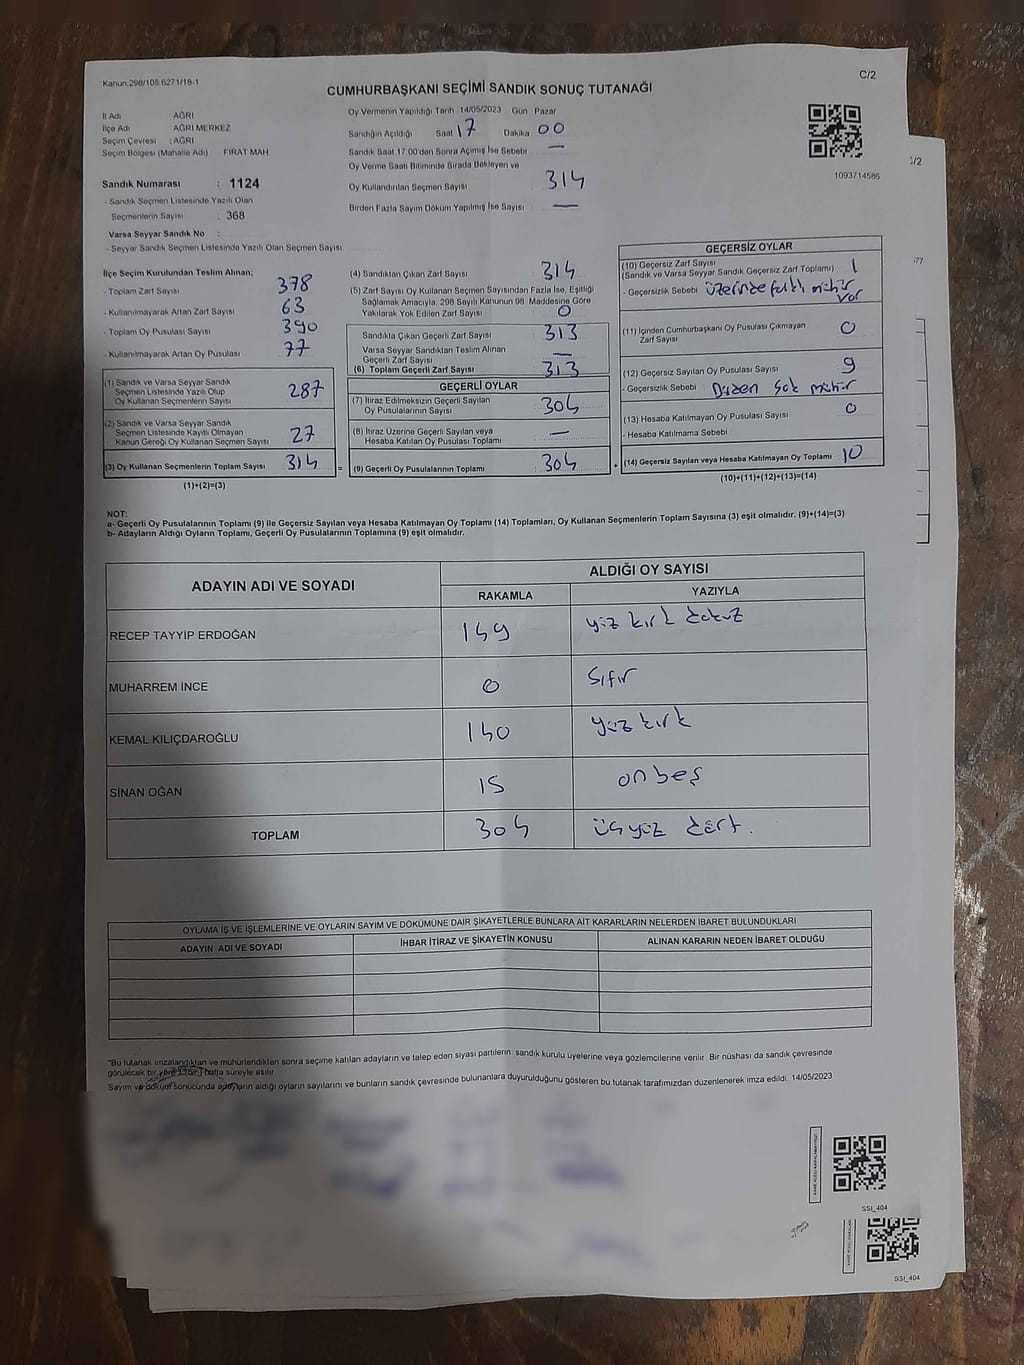 Kanun 298/105 6271/18-1
C/2
CUMHURBAŞKANI SEÇİMİ SANDIK SONUÇ TUTANAĞI
İl Adı AĞRI
İlçe Adı AĞRI MERKEZ
Seçim Çevresi : AĞRI
Seçim Bölgesi (Mahalle Adı) FIRAT MAH.
Oy Vermenin Yapıldığı Tarih 14/05/2023 Gün Pazar
Sandığın Açıldığı Saat 17 Dakika 00
Sandık Saat 17:00'den Sonra Açımış İse Sebebi —
Oy Verme Saati Bitiminde Sırada Bekleyen ve
Oy Kullandırılan Seçmen Sayısı 314
Birden Fazla Sayım Döküm Yapılmış İse Sayısı —
1093714586
Sandık Numarası : 1124
- Sandık Seçmen Listesinde Yazılı Olan
Seçmenlerin Sayısı : 368
Varsa Seyyar Sandık No :
- Seyyar Sandık Seçmen Listesinde Yazılı Olan Seçmen Sayısı
İlçe Seçim Kurulundan Teslim Alınan;
- Toplam Zarf Sayısı 378
- Kullanılmayarak Artan Zarf Sayısı 63
- Toplam Oy Pusulası Sayısı 390
- Kullanılmayarak Artan Oy Pusulası 77
(1) Sandık ve Varsa Seyyar Sandık
Seçmen Listesinde Yazılı Olup
Oy Kullanan Seçmenlerin Sayısı 287
(2) Sandık ve Varsa Seyyar Sandık
Seçmen Listesinde Kayıtlı Olmayan
Kanun Gereği Oy Kullanan Seçmen Sayısı 27
(3) Oy Kullanan Seçmenlerin Toplam Sayısı 314 =
(1)+(2)=(3)
(4) Sandıktan Çıkan Zarf Sayısı 314
(5) Zarf Sayısı Oy Kullanan Seçmen Sayısından Fazla İse, Eşitliği
Sağlamak Amacıyla, 298 Sayılı Kanunun 98. Maddesine Göre
Yakılarak Yok Edilen Zarf Sayısı 0
Sandıkta Çıkan Geçerli Zarf Sayısı 313
Varsa Seyyar Sandıktan Teslim Alınan
Geçerli Zarf Sayısı —
(6) Toplam Geçerli Zarf Sayısı 313
GEÇERLİ OYLAR
(7) İtiraz Edilmeksizin Geçerli Sayılan
Oy Pusulalarının Sayısı 304
(8) İtiraz Üzerine Geçerli Sayılan veya
Hesaba Katılan Oy Pusulası Toplamı —
(9) Geçerli Oy Pusulalarının Toplamı 304 +
GEÇERSİZ OYLAR
(10) Geçersiz Zarf Sayısı
(Sandık ve Varsa Seyyar Sandık Geçersiz Zarf Toplamı) 1
- Geçersizlik Sebebi üzerinde farklı mühür
var
(11) İçinden Cumhurbaşkanı Oy Pusulası Çıkmayan
Zarf Sayısı 0
(12) Geçersiz Sayılan Oy Pusulası Sayısı 9
- Geçersizlik Sebebi Birden çok mühür
(13) Hesaba Katılmayan Oy Pusulası Sayısı 0
- Hesaba Katılmama Sebebi
(14) Geçersiz Sayılan veya Hesaba Katılmayan Oy Toplamı 10
(10)+(11)+(12)+(13)=(14)
NOT:
a- Geçerli Oy Pusulalarının Toplamı (9) ile Geçersiz Sayılan veya Hesaba Katılmayan Oy Toplamı (14) Toplamları, Oy Kullanan Seçmenlerin Toplam Sayısına (3) eşit olmalıdır. (9)+(14)=(3)
b- Adayların Aldığı Oyların Toplamı, Geçerli Oy Pusulalarının Toplamına (9) eşit olmalıdır.
ADAYIN ADI VE SOYADI
ALDIĞI OY SAYISI
RAKAMLA YAZIYLA
RECEP TAYYİP ERDOĞAN 149 yüz kırk dokuz
MUHARREM İNCE 0 sıfır
KEMAL KILIÇDAROĞLU 140 yüz kırk
SİNAN OĞAN 15 on beş
TOPLAM 304 üç yüz dört.
OYLAMA İŞ VE İŞLEMLERİNE VE OYLARIN SAYIM VE DÖKÜMÜNE DAİR ŞİKAYETLERLE BUNLARA AİT KARARLARIN NELERDEN İBARET BULUNDUKLARI
ADAYIN ADI VE SOYADI İHBAR İTİRAZ VE ŞİKAYETİN KONUSU ALINAN KARARIN NEDEN İBARET OLDUĞU
*Bu tutanak imzalandıktan ve mühürlendikten sonra seçime katılan adayların ve talep eden siyasi partilerin sandık kurulu üyelerine veya gözlemcilerine verilir. Bir nüshası da sandık çevresinde
görülecek bir yere 1 (bir) hafta süreyle asılır
Sayım ve döküm sonucunda adayların aldığı oyların sayılarını ve bunların sandık çevresinde bulunanlara duyurulduğunu gösteren bu tutanak tarafımızdan düzenlenerek imza edildi. 14/05/2023
SSI_404
SSI_404